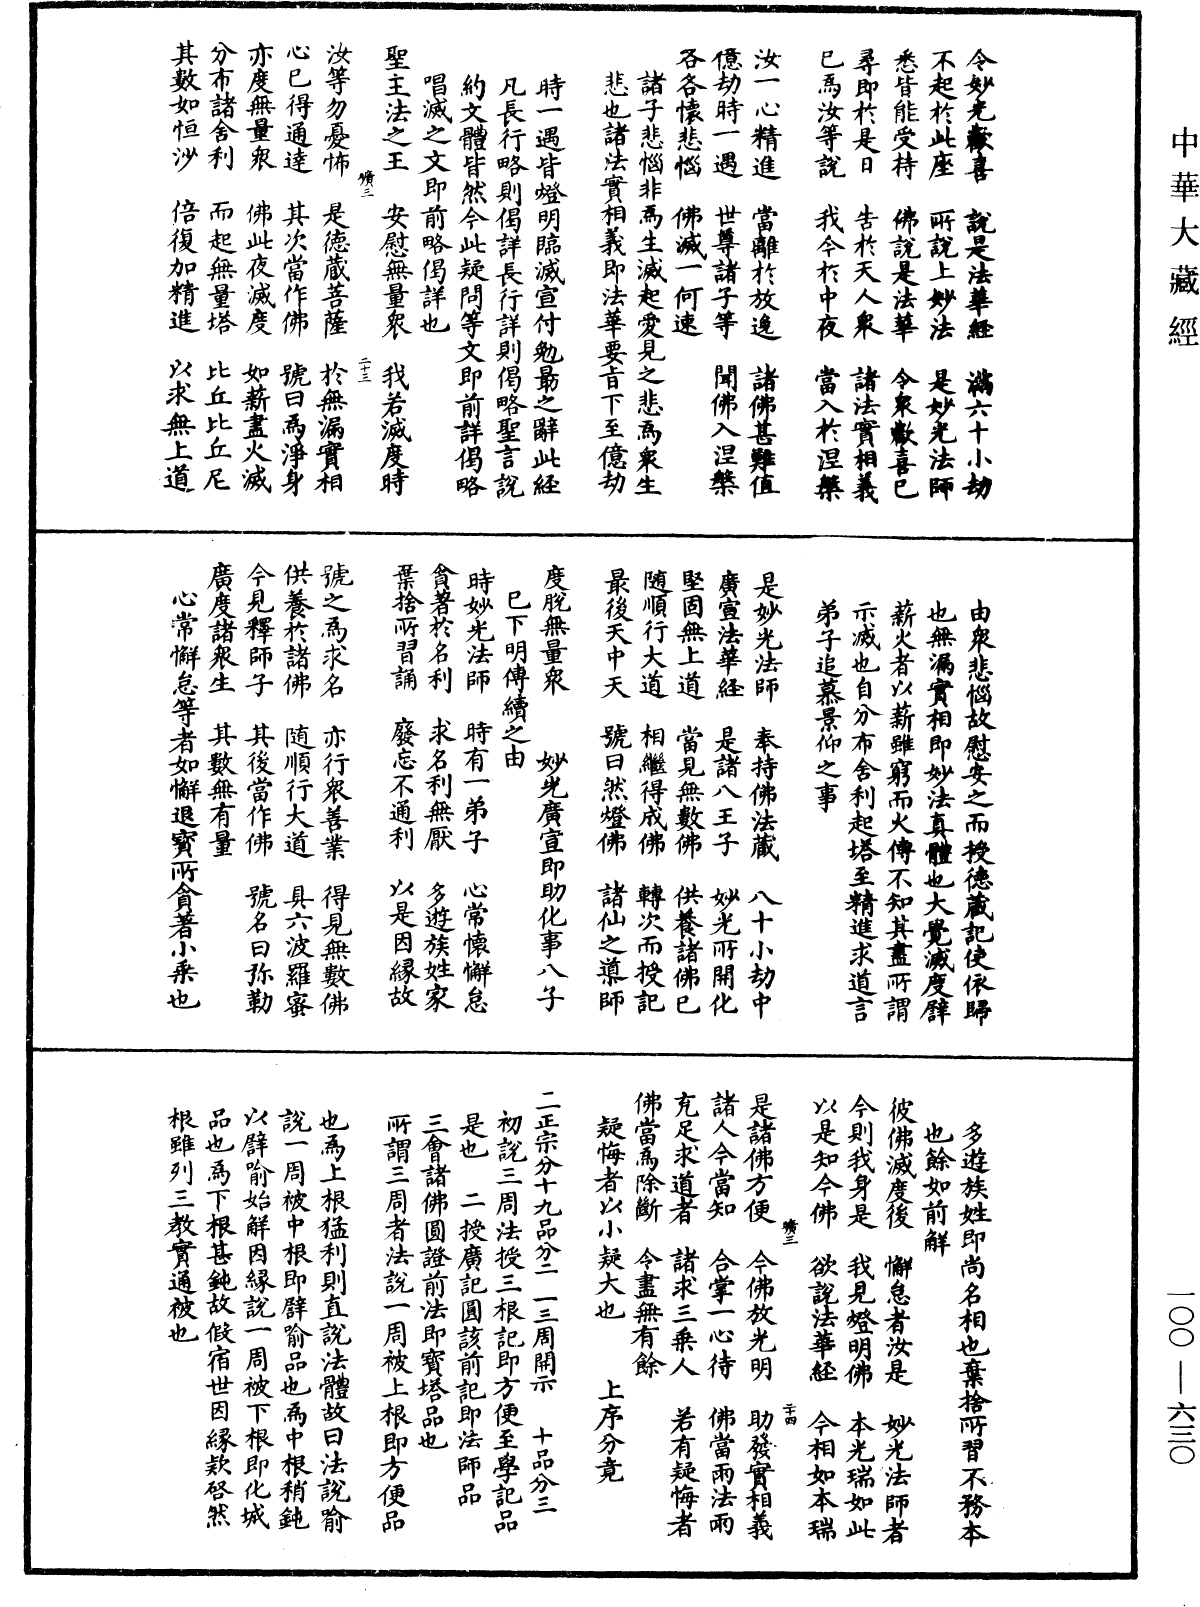 中華大藏經
令妙光歡喜　說是法華經　滿六十小劫
不起於此座　所說上妙法　是妙光法師
悉皆能受持　佛說是法華　令衆歡喜已
尋即於是日　告於天人衆　諸法實相義
已爲汝等說　我今於中夜　當入於涅槃
汝一心精進　當離於放逸　諸佛甚難值
億劫時一遇　世尊諸子等　聞佛入涅槃
各各懷悲惱　佛滅一何速
諸子悲惱非爲生滅起愛見之悲爲衆生
悲也諸法實相義即法華要旨下至億劫
時一遇皆燈明臨滅宣付勉最之辭此經
凡長行略則偈詳長行詳則偈略聖言說
約文體皆然今此疑問等文即前詳偈略
唱滅之文即前略偈詳也
聖主法之王　安慰無量衆　我若滅度時
曠三　二十三
汝等勿憂怖　是德藏菩薩　於無漏實相
心已得通達　其次當作佛　號曰爲淨身
亦度無量衆　佛此夜滅度　如薪盡火滅
分布諸舍利　而起無量塔　比丘比丘尼
其數如恒沙　倍復加精進　以求無上道
由衆悲惱故慰安之而授德藏記使依歸
也無漏實相即妙法真體也大覺滅度譬
薪火者以薪雖窮而火傳不知其盡所謂
示滅也自分布舍利起塔至精進求道言
弟子追慕景仰之事
是妙光法師　奉持佛法藏　八十小劫中
廣宣法華經　是諸八王子　妙光所開化
堅固無上道　當見無數佛　供養諸佛已
隨順行大道　相繼得成佛　轉次而授記
最後天中天　號曰然燈佛　諸仙之導師
度脫無量衆　妙光廣宣即助化事八子
已下明傳續之由
時妙光法師　時有一弟子　心常懷懈怠
貪著於名利　求名利無厭　多遊族姓家
棄捨所習誦　廢忘不通利　以是因緣故
號之爲求名　亦行衆善業　得見無數佛
供養於諸佛　隨順行大道　具六波羅蜜
今見釋師子　其後當作佛　號名曰弥勒
廣度諸衆生　其數無有量
心常懈怠等者如懈退寶所貪著小乘也
多遊族姓即尚名相也棄捨所習不務本
也餘如前解
彼佛滅度後　懈怠者汝是　妙光法師者
今則我身是　我見燈明佛　本光瑞如此
以是知今佛　欲說法華經　今相如本瑞
曠三　二十四
是諸佛方便　今佛放光明　助發實相義
諸人今當知　合掌一心待　佛當雨法雨
充足求道者　諸求三乘人　若有疑悔者
佛當爲除斷　令盡無有餘
疑悔者以小疑大也　上序分竟
二正宗分十九品分二　一三周開示　十品分三
初說三周法授三根記即方便至學記品
是也　二授廣記圓該前記即法師品
三會諸佛圓證前法即寶塔品也
所謂三周者法說一周被上根即方便品
也爲上根猛利則直說法體故曰法說喻
說一周被中根即譬喻品也爲中根稍鈍
以譬喻始解因緣說一周被下根即化城
品也爲下根甚鈍故假宿世因緣欵啓然
根雖列三教實通被也
一〇〇—六三〇